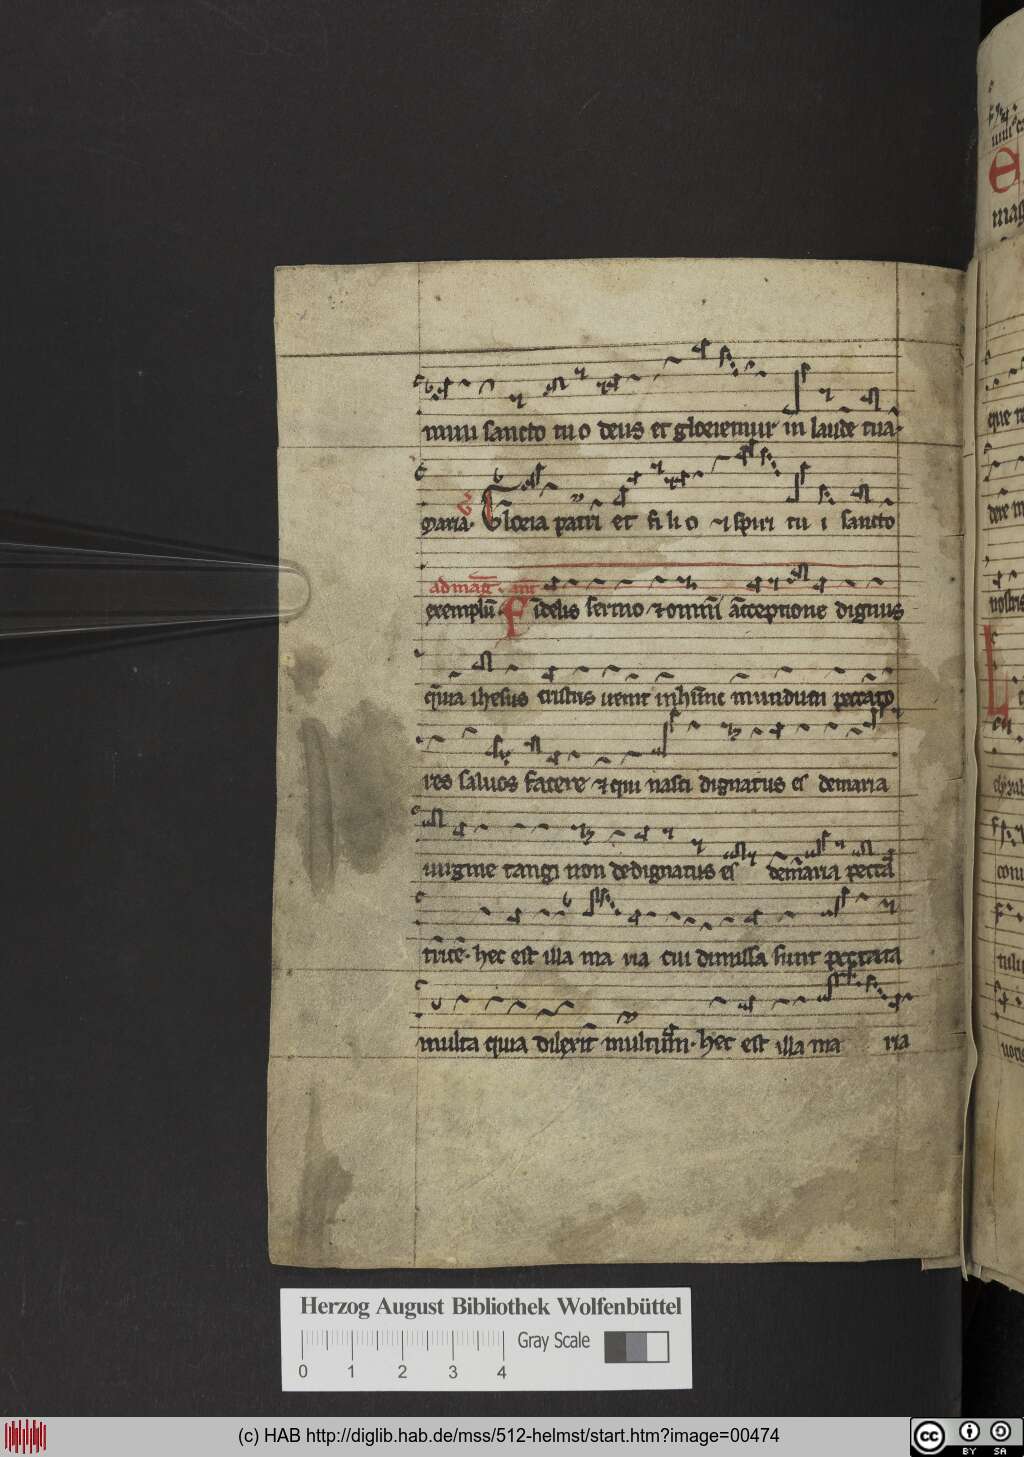 minī sancto tuo deus et gloriemur in laude tua.
Maria. V Gloria patri et fi li o et spiri tu i sancto
ad mag̅. an̅t
exemplū. Fidelis sermo et omni acceptione dignus
quia ihesus cristus uenit in hunc mundum peccato
res saluos facere et qui nasci dignatus es de maria
uirgine tangi non dedignatus es de maria pecca
trice. hec est illa ma ria cui dimissa sunt peccata
multa quia dilexit multum. hec est illa ma ria
Herzog August Bibliothek Wolfenbüttel
Gray Scale
0 1 2 3 4
(c) HAB http://diglib.hab.de/mss/512-helmst/start.htm?image=00474
cc BY SA